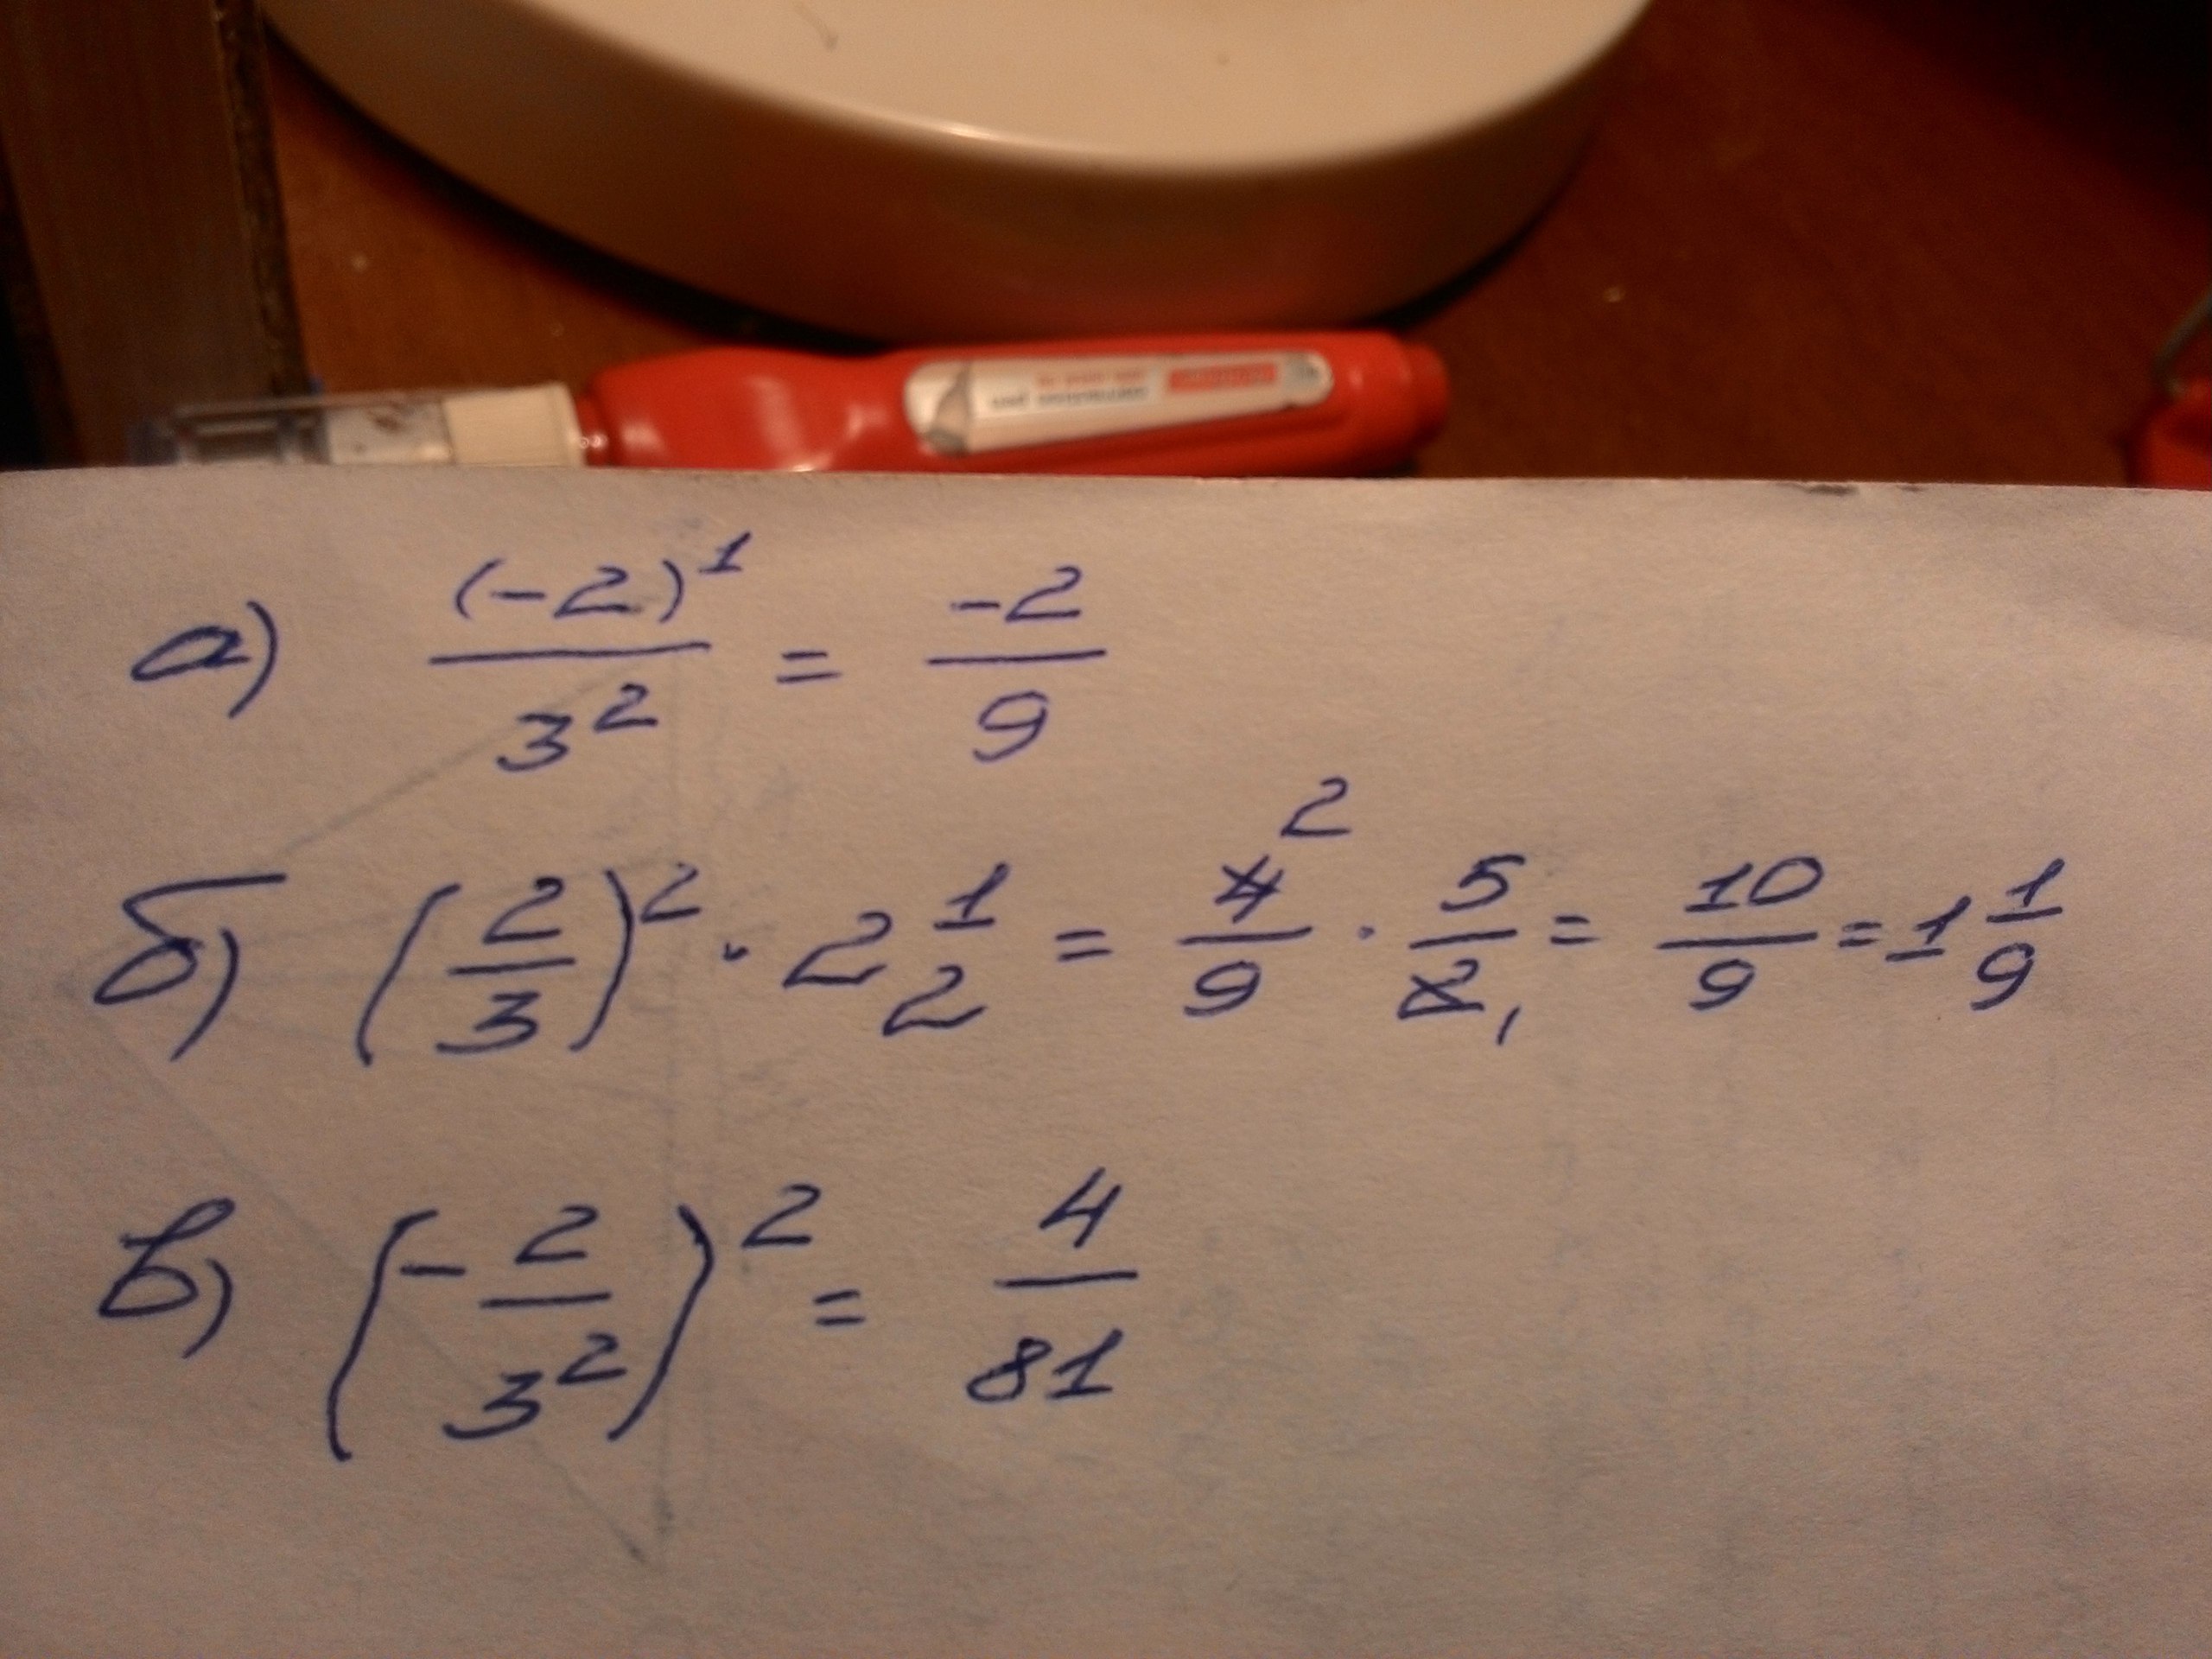 а) (-2)^1 / 3^2 = -2 / 9
б) (2/3)^2 · 2 1/2 = 4/9 · 5/2 = 10/9 = 1 1/9
в) (- 2/3^2)^2 = 4/81